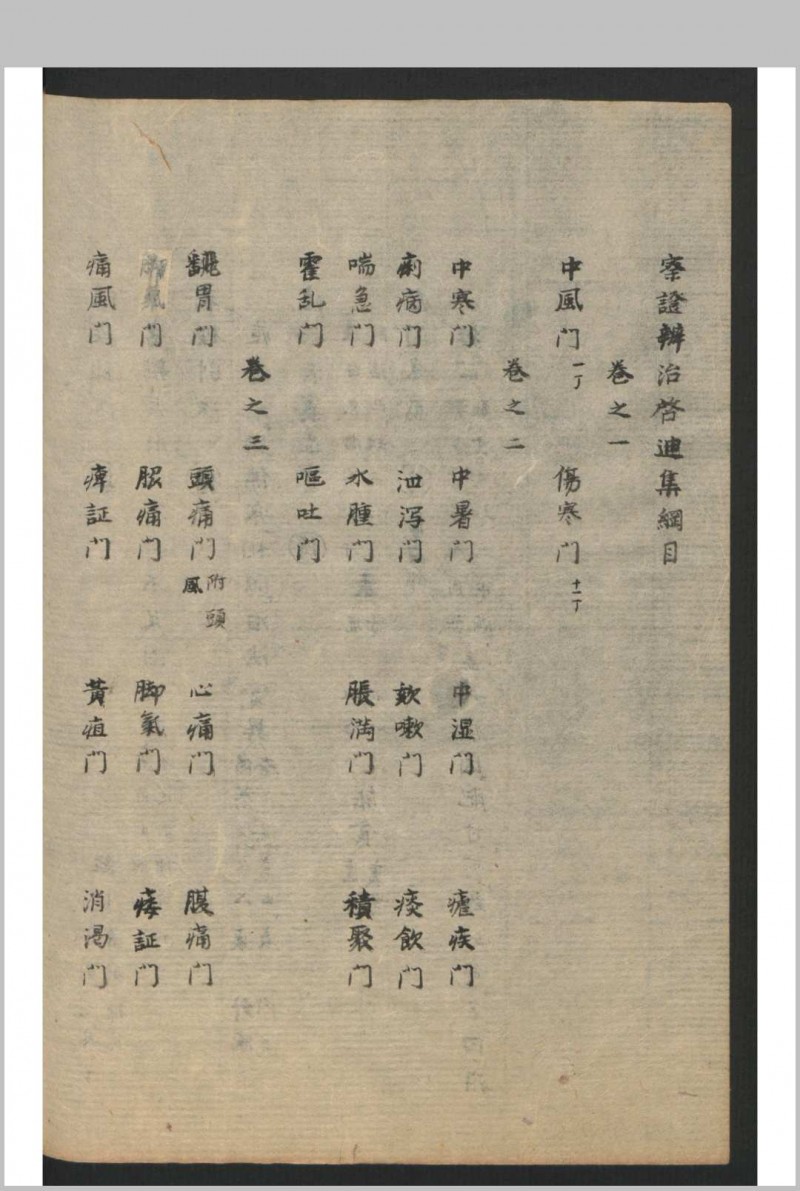 察證辨治啓迪集綱目
卷之一
中風门 一丁 傷寒门 十一丁
卷之二
中寒门 中暑门 中湿门 瘧疾门
痢病门 泄泻门 欬嗽门 痰飲门
喘急门 水腫门 脹満门 積聚门
霍乱门 嘔吐门
卷之三
翻胃门 頭痛门 附頭風 心痛门 腹痛门
脚氣门 腰痛门 脚氣门 痿証门
痛風门 痺証门 黄疸门 消渇门